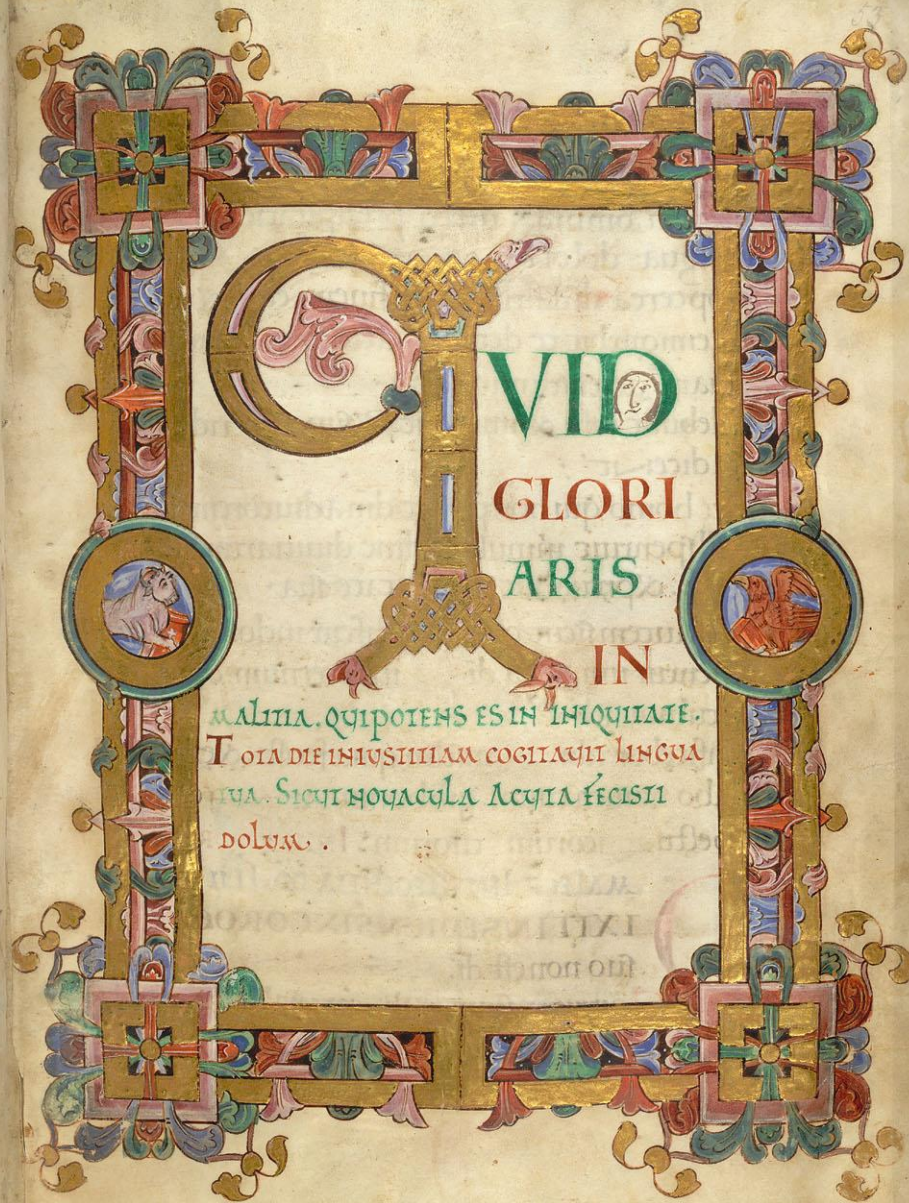 QVID
GLORI
ARIS
IN
MALITIA . QUI POTENS ES IN INIQUITATE .
TOTA DIE INIUSTITIAM COGITAUIT LINGUA
TUA . SICUT NOUACULA ACUTA FECISTI
DOLUM .